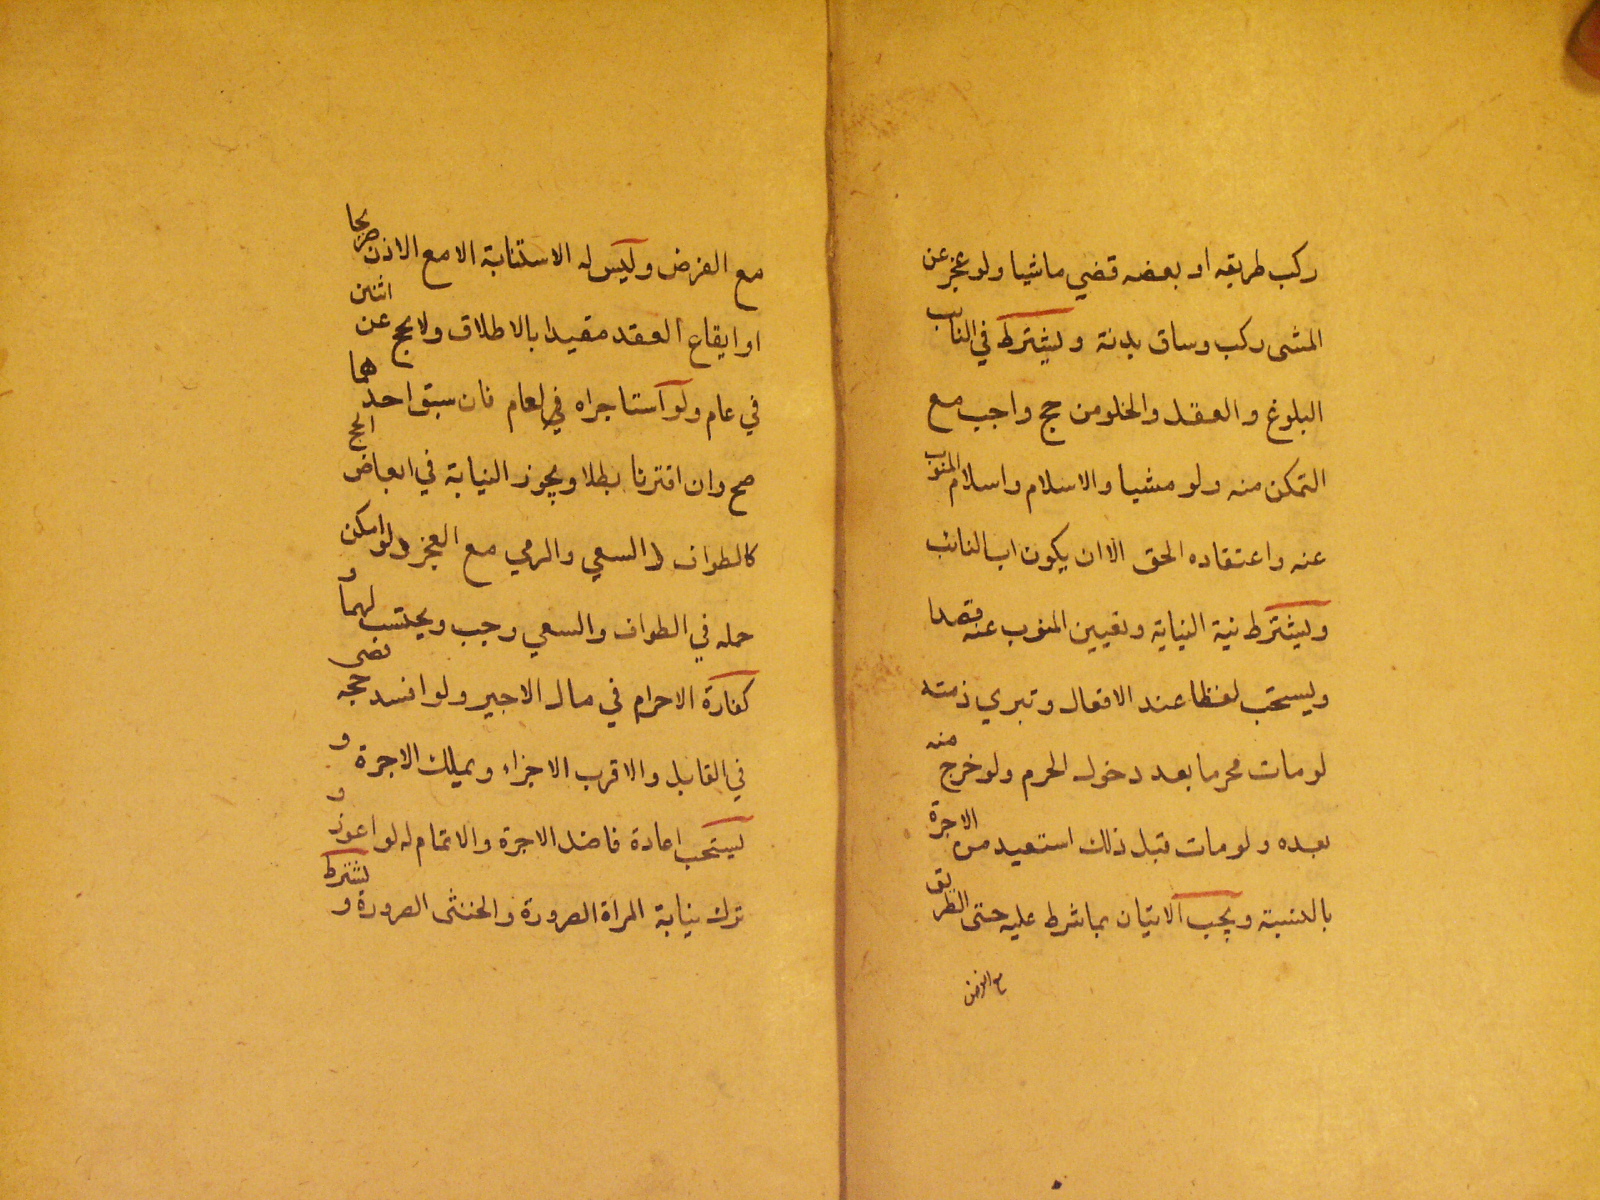 ركب طريقه او بعضه قضي ماشيا ولو عجز عن
المشى ركب وساق بدنة ويشترط في النائب
البلوغ والعقل والخلو من حج واجب مع
التمكن منه ولو مشيا والاسلام واسلام المنوب
عنه واعتقاده الحق الا ان يكون اب النائب
ويشترط نية النيابة وتعيين المنوب عنه قصدا
ويستحب لفظا عند الافعال وتبري ذمته
لو مات محرما بعد دخول الحرم ولو خرج منه
بعده ولو مات قبل ذلك استعيد من الاجرة
بالنسبة ويجب الاتيان بما شرط عليه حتى الطريق
مع الغرض
مع الغرض وليس له الاستنابة الا مع الاذن صريحا
او ايقاع العقد مقيدا بالاطلاق ولا يحج عن اثنين
في عام ولو استاجراه في لعام فان سبق احدهما
صح وان اقترنا بطلا ويجوز النيابة في ابعاض الحج
كالطواف و السعي والرمي مع العجز ولو امكن
حمله في الطواف والسعي وجب ويحتسب لهما و
كفارة الاحرام في مال الاجير ولو افسد حجه قضى
في القابل والاقرب الاجزاء ويملك الاجرة و
يستحب اعادة فاضل الاجرة والاتمام له لو اعوز و
ترك نيابة المراة الصرورة والخنثى الصرورة و يشترط